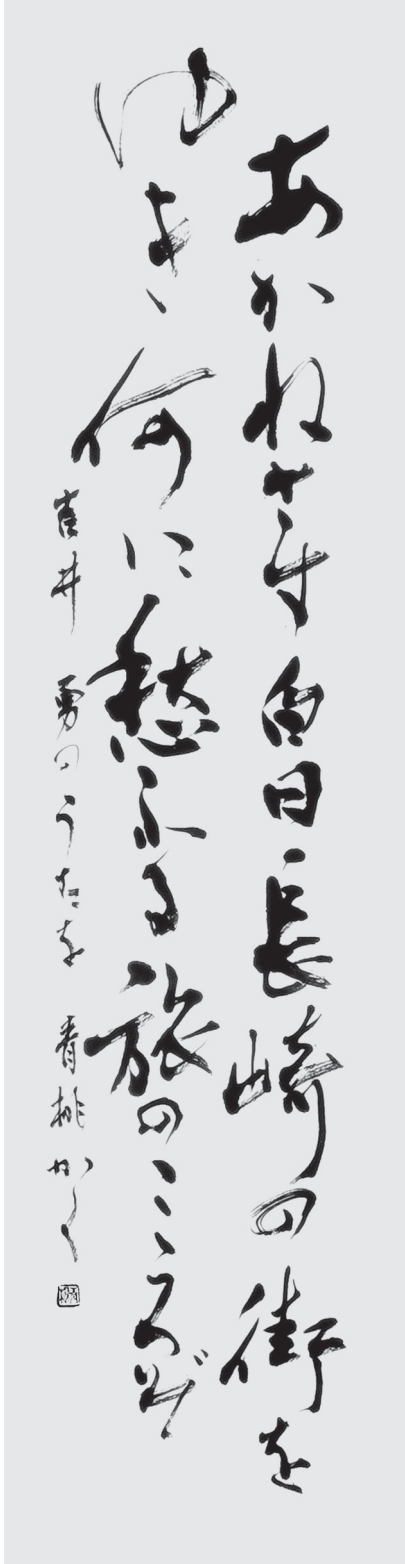 あかねさす白日長崎の街を
ゆき何に愁ふる旅のこころぞ
吉井勇のうたを 青桃かく